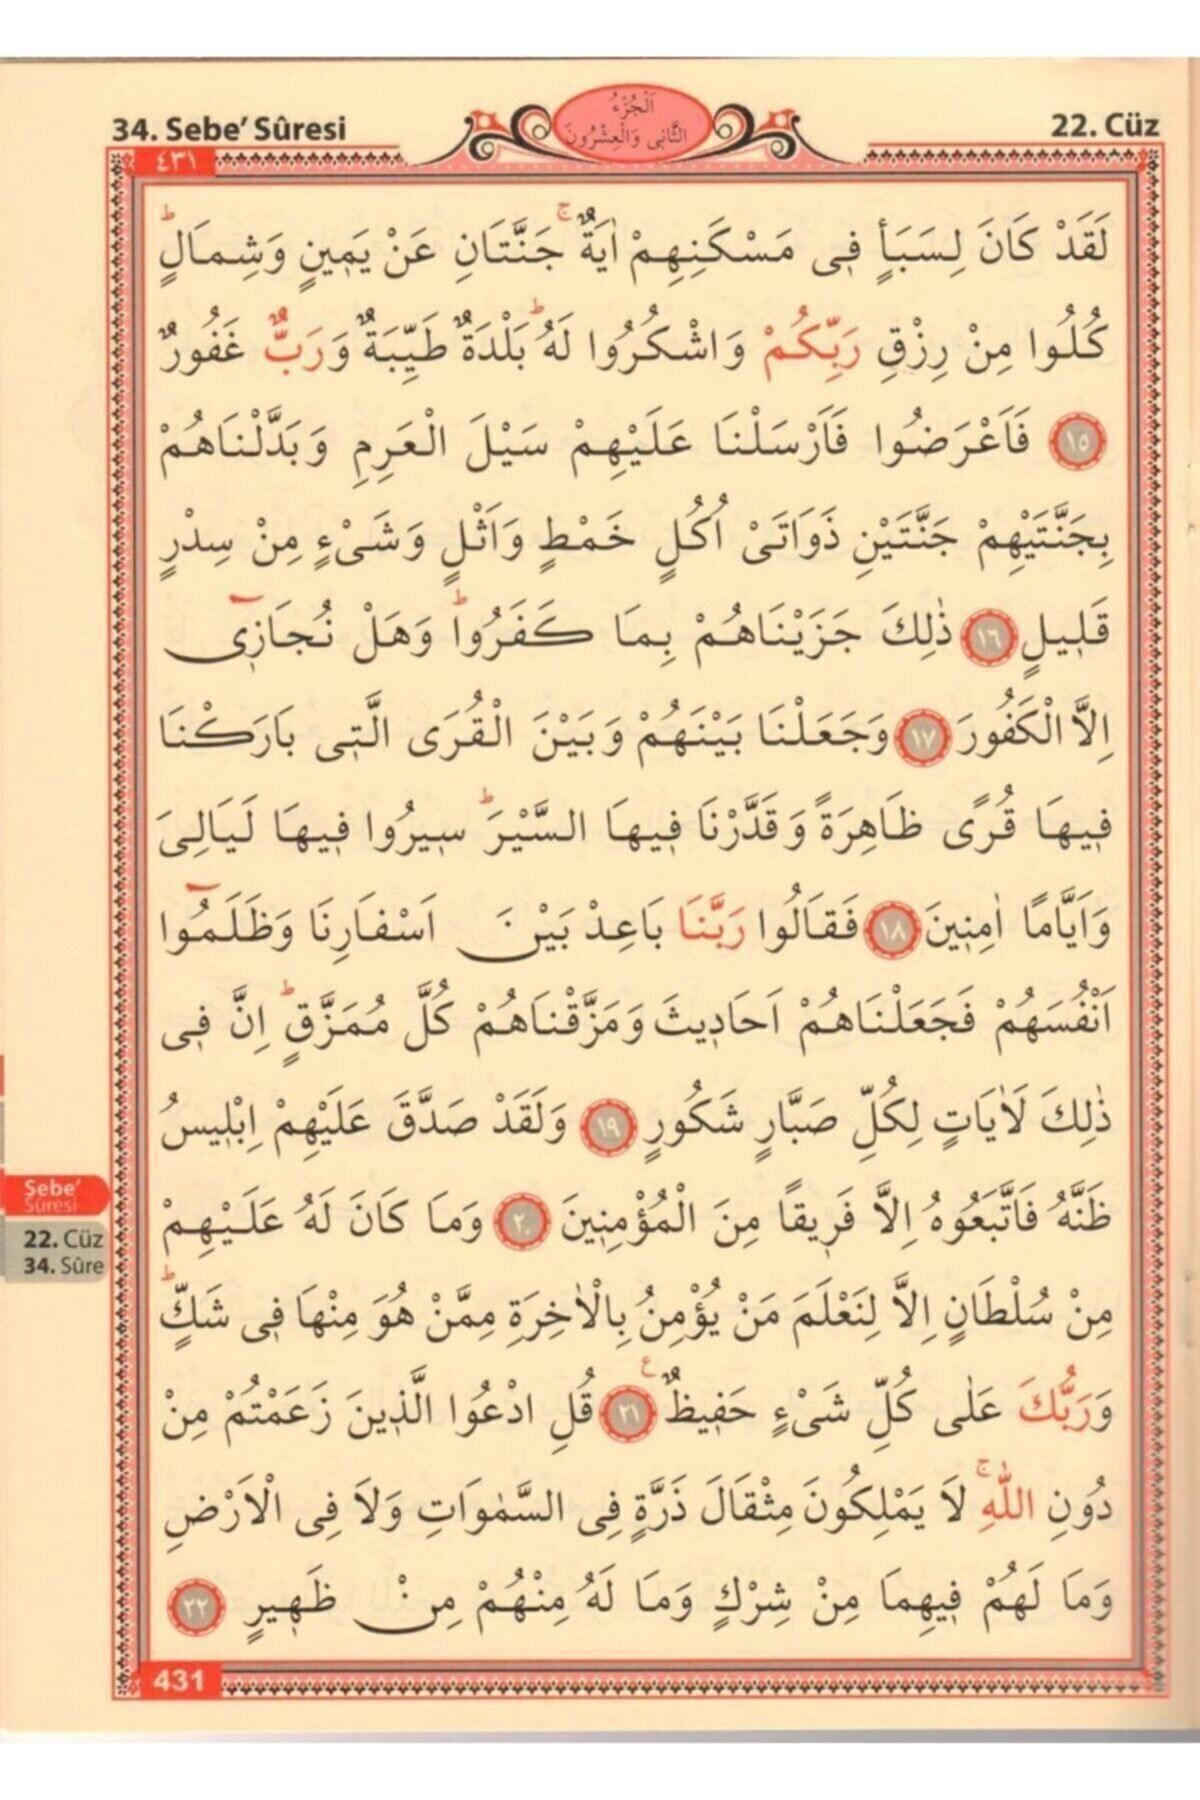 34. Sebe’ Sûresi
اَلْجُزْءُ
الثَّانِى وَالْعِشْرُونَ
22. Cüz
٤٣١
لَقَدْ كَانَ لِسَبَاٍ فٖى مَسْكَنِهِمْ اٰيَةٌۚ جَنَّتَانِ عَنْ يَمٖينٍ وَشِمَالٍؕ
كُلُوا مِنْ رِزْقِ رَبِّكُمْ وَاشْكُرُوا لَهُؕ بَلْدَةٌ طَيِّبَةٌ وَرَبٌّ غَفُورٌ
﴿١٥﴾ فَاَعْرَضُوا فَاَرْسَلْنَا عَلَيْهِمْ سَيْلَ الْعَرِمِ وَبَدَّلْنَاهُمْ
بِجَنَّتَيْهِمْ جَنَّتَيْنِ ذَوَاتَىْ اُكُلٍ خَمْطٍ وَاَثْلٍ وَشَىْءٍ مِنْ سِدْرٍ
قَلٖيلٍ ﴿١٦﴾ ذٰلِكَ جَزَيْنَاهُمْ بِمَا كَفَرُواؕ وَهَلْ نُجَازٖٓى
اِلَّا الْكَفُورَ ﴿١٧﴾ وَجَعَلْنَا بَيْنَهُمْ وَبَيْنَ الْقُرَى الَّتٖى بَارَكْنَا
فٖيهَا قُرًى ظَاهِرَةً وَقَدَّرْنَا فٖيهَا السَّيْرَؕ سٖيرُوا فٖيهَا لَيَالِىَ
وَاَيَّامًا اٰمِنٖينَ ﴿١٨﴾ فَقَالُوا رَبَّنَا بَاعِدْ بَيْنَ اَسْفَارِنَا وَظَلَمُٓوا
اَنْفُسَهُمْ فَجَعَلْنَاهُمْ اَحَادٖيثَ وَمَزَّقْنَاهُمْ كُلَّ مُمَزَّقٍؕ اِنَّ فٖى
ذٰلِكَ لَاٰيَاتٍ لِكُلِّ صَبَّارٍ شَكُورٍ ﴿١٩﴾ وَلَقَدْ صَدَّقَ عَلَيْهِمْ اِبْلٖيسُ
ظَنَّهُ فَاتَّبَعُوهُ اِلَّا فَرٖيقًا مِنَ الْمُؤْمِنٖينَ ﴿٢٠﴾ وَمَا كَانَ لَهُ عَلَيْهِمْ
مِنْ سُلْطَانٍ اِلَّا لِنَعْلَمَ مَنْ يُؤْمِنُ بِالْاٰخِرَةِ مِمَّنْ هُوَ مِنْهَا فٖى شَكٍّؕ
وَرَبُّكَ عَلٰى كُلِّ شَىْءٍ حَفٖيظٌ ﴿٢١﴾ ع قُلِ ادْعُوا الَّذٖينَ زَعَمْتُمْ مِنْ
دُونِ اللّٰهِۚ لَا يَمْلِكُونَ مِثْقَالَ ذَرَّةٍ فِى السَّمٰوَاتِ وَلَا فِى الْاَرْضِ
وَمَا لَهُمْ فٖيهِمَا مِنْ شِرْكٍ وَمَا لَهُ مِنْهُمْ مِنْ ظَهٖيرٍ ﴿٢٢﴾
Sebe’
Sûresi
22. Cüz
34. Sûre
431